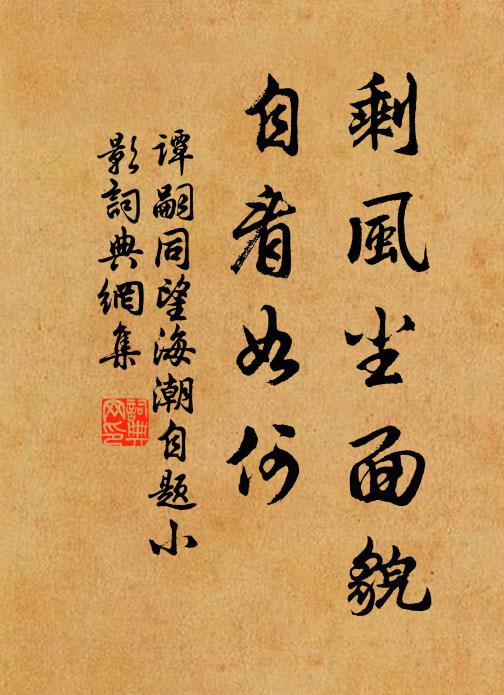 剩風尘面貌
自看如何
谭嗣同望海潮自题小
影詞典網集
詞典
网印